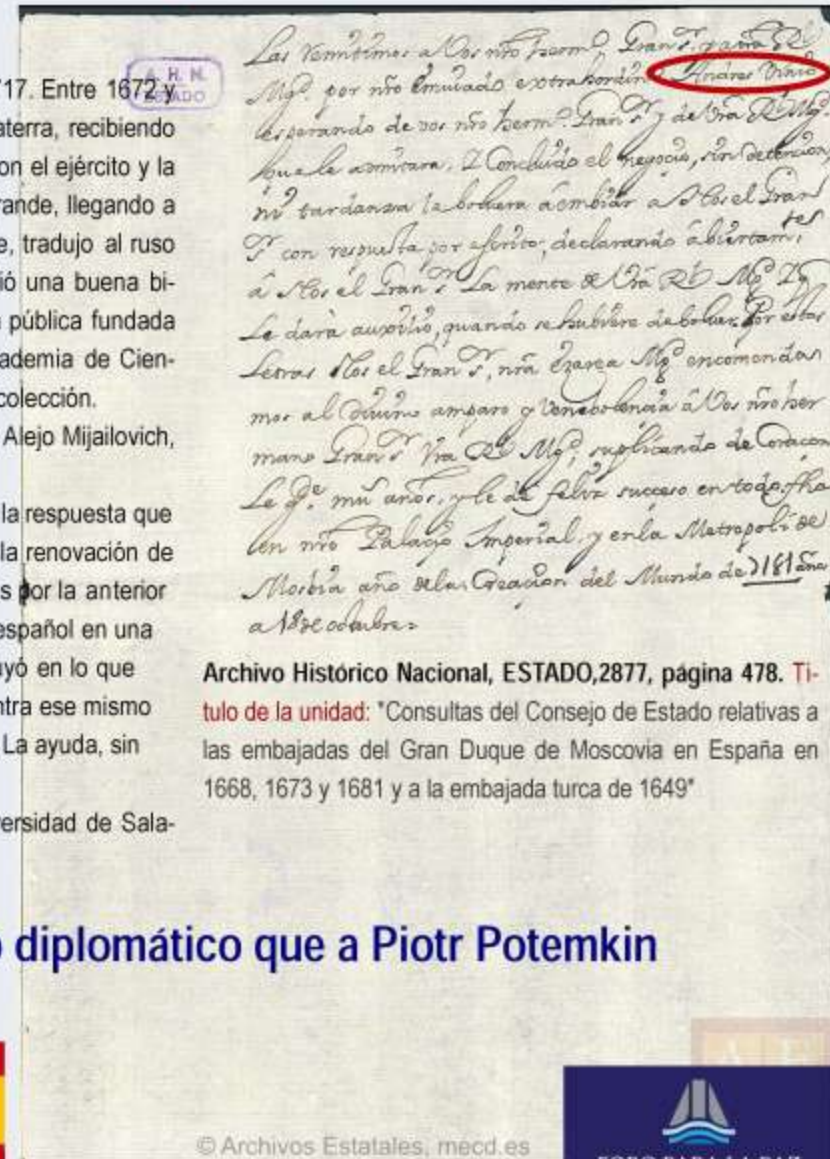 717. Entre 1672 y
aterra, recibiendo
on el ejército y la
rande, llegando a
e, tradujo al ruso
ió una buena bi-
a pública fundada
ademia de Cien-
colección.
Alejo Mijailovich,
la respuesta que
la renovación de
s por la anterior
español en una
uyó en lo que
ntra ese mismo
La ayuda, sin
ersidad de Sala-
A. H. N.
ESTADO
Las remitimos a Vos nro herm.º Gran Sr. para
Mgd. por nro emviado extrahordin.º Andres Vinio
esperando de vos nro herm.º Gran Sr. y de Vra Rl Mgd.
que le admitara, Y Concluido el negocio, sin detencion,
ni tardanza la bolvera a embiar a Nos el Gran
Sr con respuesta por escrito, declarando abiertam.tes
a Nos el Gran Sr La mente de Vra Rl Mgd Y
Le dará auxilio, quando se hubiere de bolver. Por estas
Letras Nos el Gran Sr, nra Mgd encomenda
mos al Divino amparo y a Vos nro her
mano Gran Sr Vra Rl Mgd, suplicando de Coracon
Le g.e mu años, y le dé feliz successo en todo, fha
en nro Palacio Imperial, y en la Metropoli de
año de la Creacion del Mundo de 7181 años
a 18 de octubre
Archivo Histórico Nacional, ESTADO,2877, página 478. Tí-
tulo de la unidad: "Consultas del Consejo de Estado relativas a
las embajadas del Gran Duque de Moscovia en España en
1668, 1673 y 1681 y a la embajada turca de 1649"
o diplomático que a Piotr Potemkin
© Archivos Estatales, mecd.es
FORO PARA LA PAZ